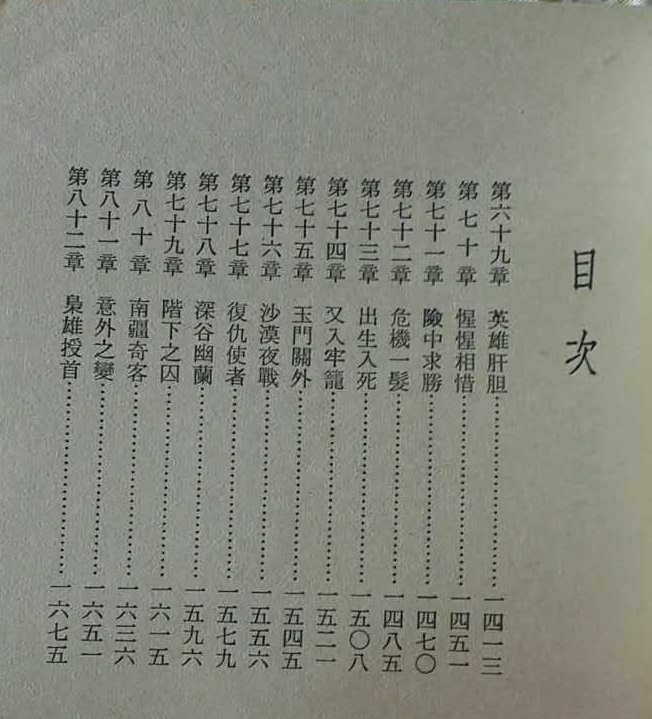 目次
第六十九章　英雄肝胆……………………一四一三
第七十章　惺惺相惜……………………一四五一
第七十一章　險中求勝……………………一四七〇
第七十二章　危機一髮……………………一四八五
第七十三章　出生入死……………………一五〇八
第七十四章　又入牢籠……………………一五二一
第七十五章　玉門關外……………………一五四五
第七十六章　沙漠夜戰……………………一五五六
第七十七章　復仇使者……………………一五七九
第七十八章　深谷幽蘭……………………一五九六
第七十九章　階下之囚……………………一六一五
第八十章　南疆奇客……………………一六三六
第八十一章　意外之變……………………一六五一
第八十二章　梟雄授首……………………一六七五